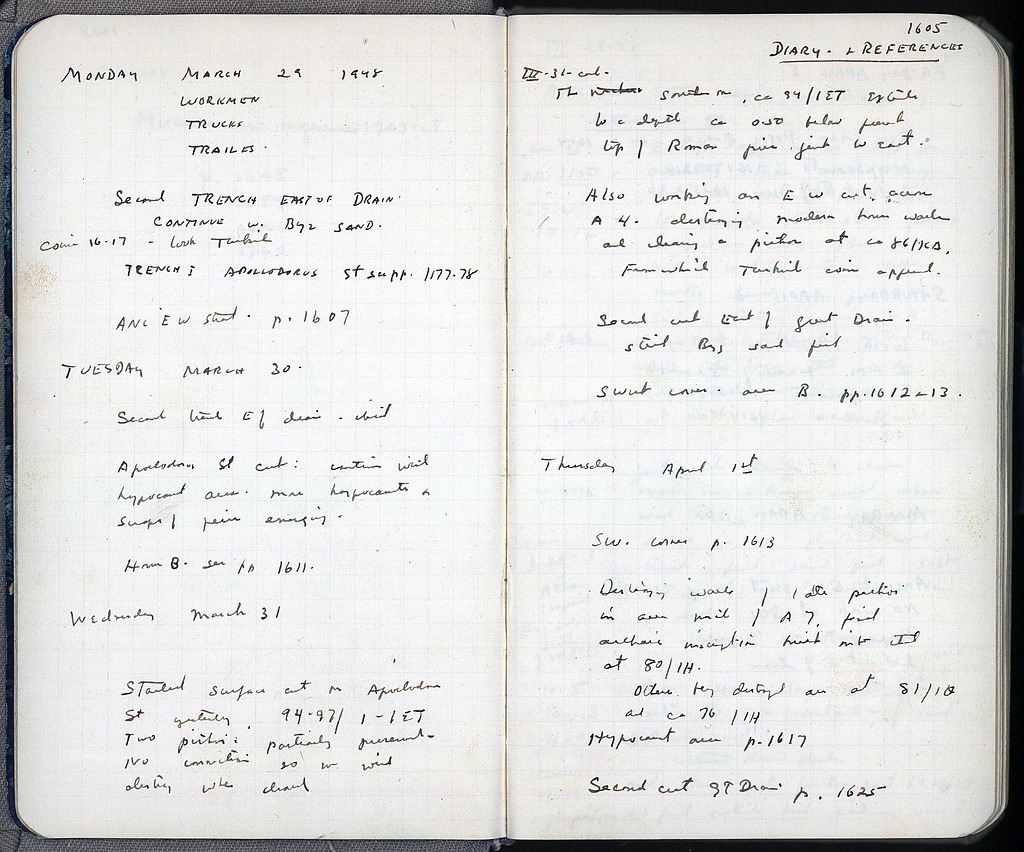 MONDAY MARCH 29 1948
WORKMEN
TRUCKS
TRAILES.
Second TRENCH EAST OF DRAIN.
CONTINUE w. Byz SAND.
Coin 16-17 - look Turkish
TRENCH I APOLLODORUS St supp. 1177-78
ANC E W street. p. 1607
TUESDAY MARCH 30.
Second trench E of drain - until
Apollodorus St cut: continue until
hypocaust area. more hypocausts &
scraps of
House B. see pp 1611.
Wednesday March 31
Started surface cut on Apollodorus
St yesterday, 94-97/ 1-1ET
Two pithoi partially preserved -
No connection so we will
destroy when cleaned
1605
DIARY - & REFERENCES
III-31-cont.
The southern, ca 94/1ET
to a depth ca 0.50 below
top of Roman to east.
Also working on E W cut, across
A 4. destroying modern house walls
and cleaning a pithos at ca 86/KA,
From which Turkish coin appeared.
Second cut East of great Drain.
still Byz sand fill
SWest corner - area B. pp. 1612-13.
Thursday April 1st
SW. corner p. 1613
Destroying walls of late pithos
in area of A 7, find
archaic inscription built into
at 80/1H.
Others being destroyed are at 81/1Θ
and ca 76 /1H
Hypocaust area p. 1617
Second cut GT Drain p. 1625